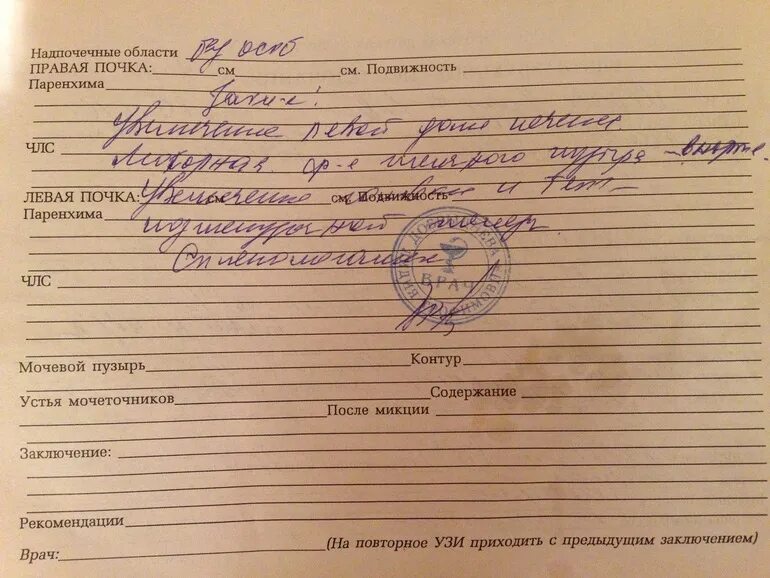 Надпочечные области б/у особ
ПРАВАЯ ПОЧКА: см см. Подвижность
Паренхима
Увеличение левой доли печени.
ЧЛС
Моторная ф-я желчного пузыря – в норме.
ЛЕВАЯ ПОЧКА: см см. Подвижность
Увеличение головки и
Паренхима
поджелудочной
Спленомегалия
ЧЛС
ВРАЧ
Мочевой пузырь Контур
Устья мочеточников Содержание
После микции
Заключение:
Рекомендации
Врач: (На повторное УЗИ приходить с предыдущим заключением)